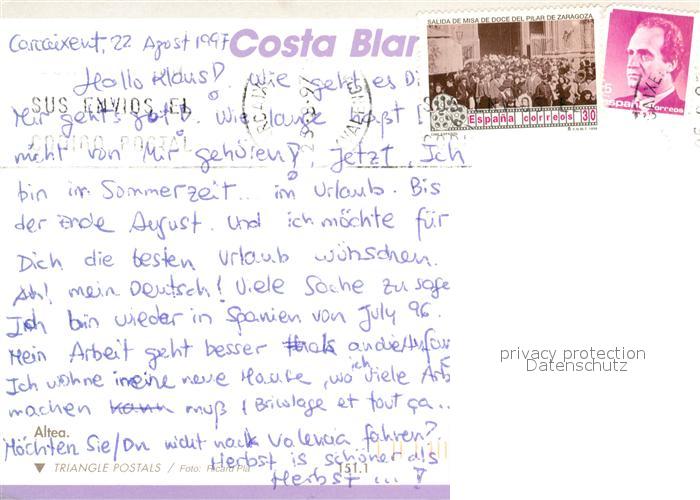 Costa Blan
SALIDA DE MISA DE DOCE DEL PILAR DE ZARAGOZA
Carcaixent, 22 Agost 1997
Hallo Klaus! Wie geht es Di
5
España correos
SUS ENVIOS EL
España correos 30
Mir geht's gut! Wie lange
CODIGO POSTAL
nicht von Mir gehören!, jetzt, Ich
bin in Sommerzeit.. im Urlaub. Bis
der Ende August. Und ich möchte für
Dich die besten Urlaub wünschen.
Ah! mein Deutsch! Viele Sache zu sage
Ich bin wieder in Spanien von July 96.
Mein Arbeit geht besser
privacy protection
Datenschutz
Ich wohne meine neue Hause, wo ich viele Arb
machen kann muß (Bricolage et tout ça..
Altea.
Möchten Sie/Du nicht nach Valencia fahren?
Herbst is schöner als
▼ TRIANGLE POSTALS / Foto: Ricard Pla
151.1
Herbst ... !